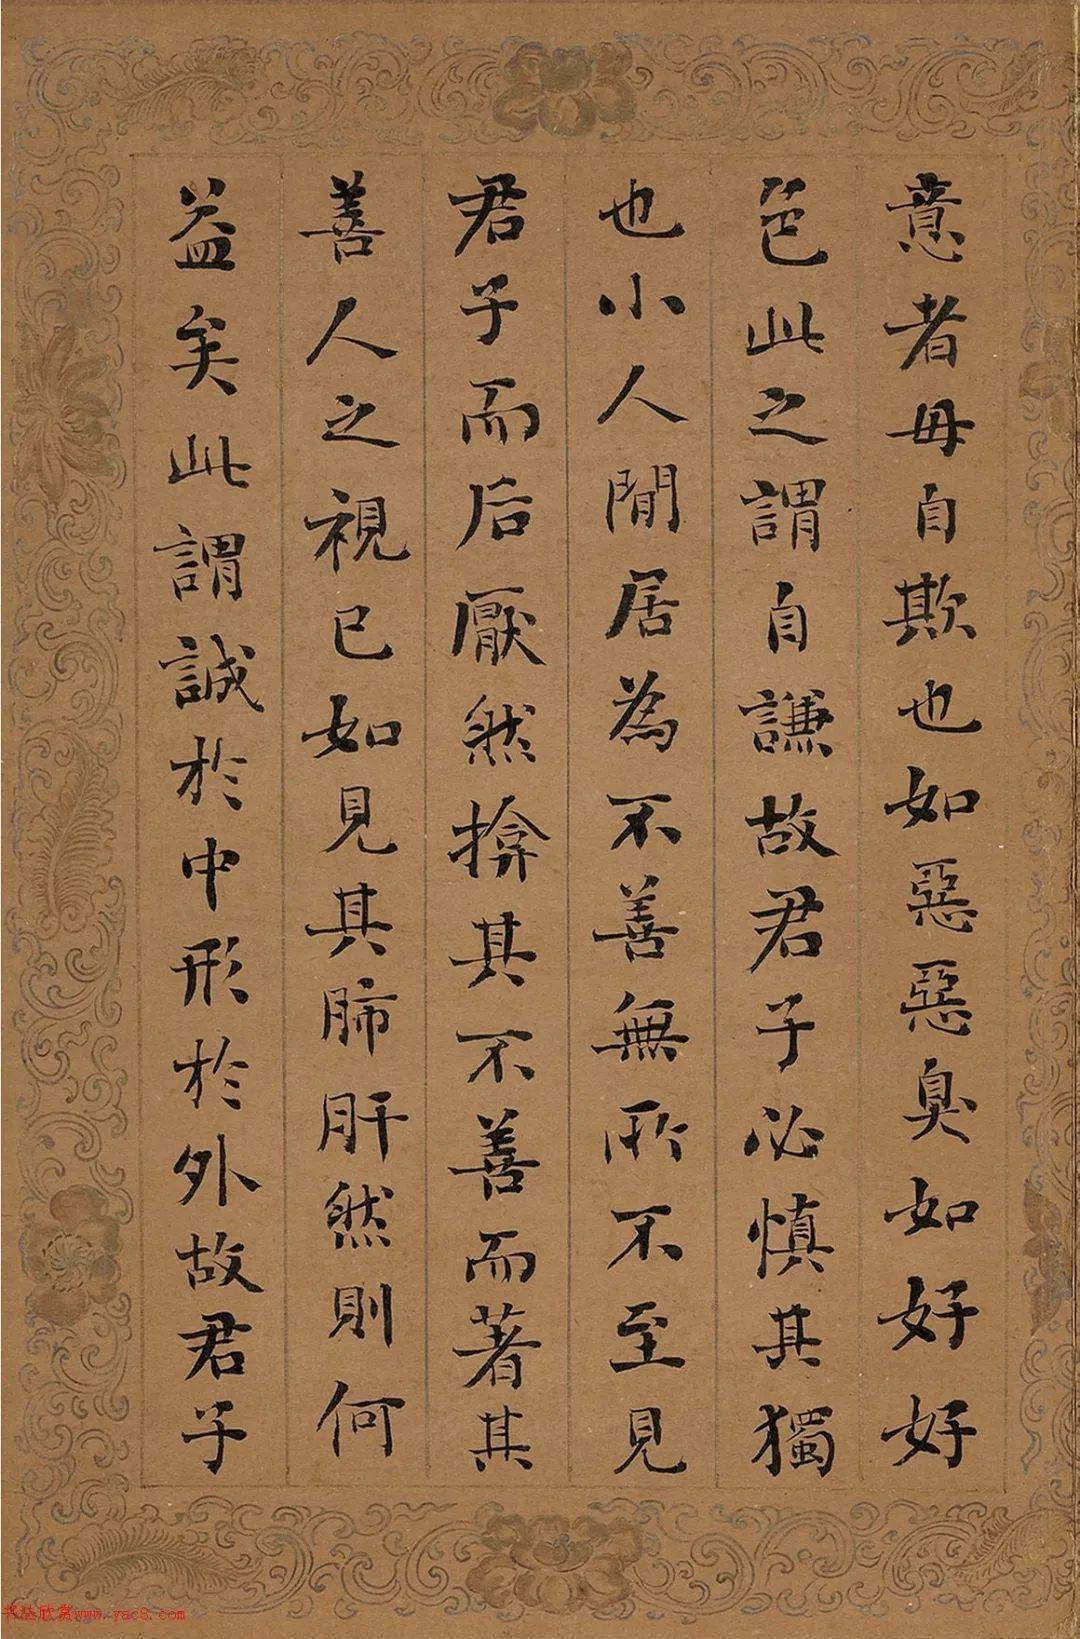 意者毋自欺也如惡惡臭如好好
色此之謂自謙故君子必慎其獨
也小人閒居為不善無所不至見
君子而后厭然揜其不善而著其
善人之視己如見其肺肝然則何
益矣此謂誠於中形於外故君子
书法欣赏www.yac8.com